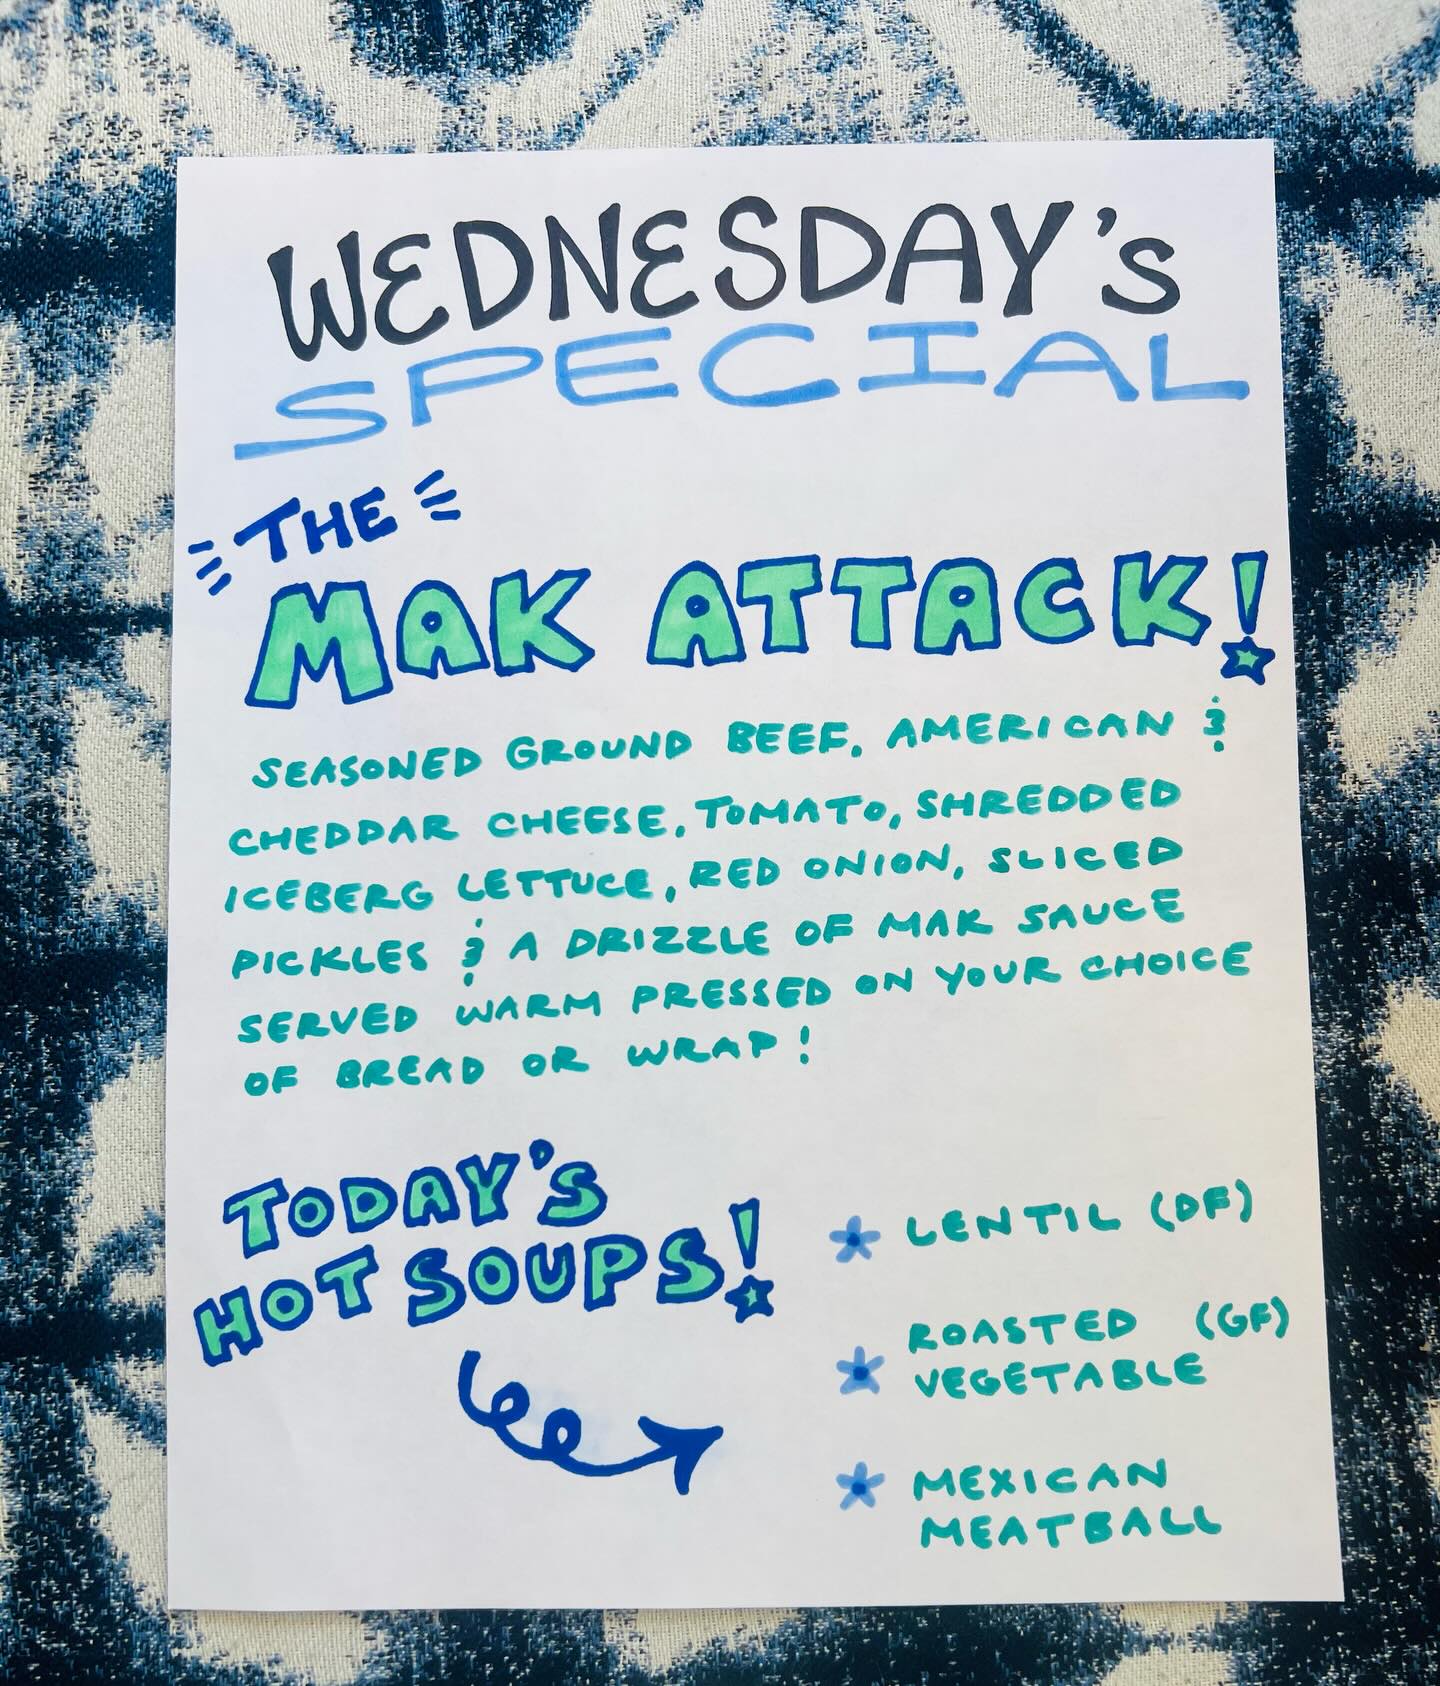 WEDNESDAY's
SPECIAL
THE
MAK ATTACK!
SEASONED GROUND BEEF, AMERICAN &
CHEDDAR CHEESE, TOMATO, SHREDDED
ICEBERG LETTUCE, RED ONION, SLICED
PICKLES & A DRIZZLE OF MAK SAUCE
SERVED WARM PRESSED ON YOUR CHOICE
OF BREAD OR WRAP!
TODAY'S
HOT SOUPS!
LENTIL (DF)
ROASTED (GF)
VEGETABLE
MEXICAN
MEATBALL